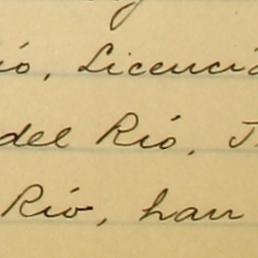 io, Licencia
del Río, J
Río, han